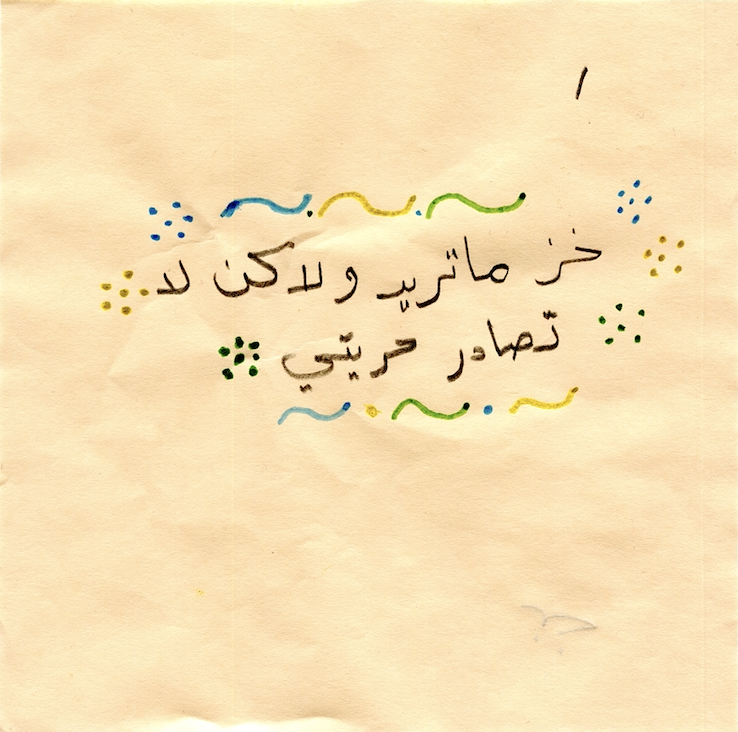 ١
خز ما تريد ولاكن لا
تصادر حريتي